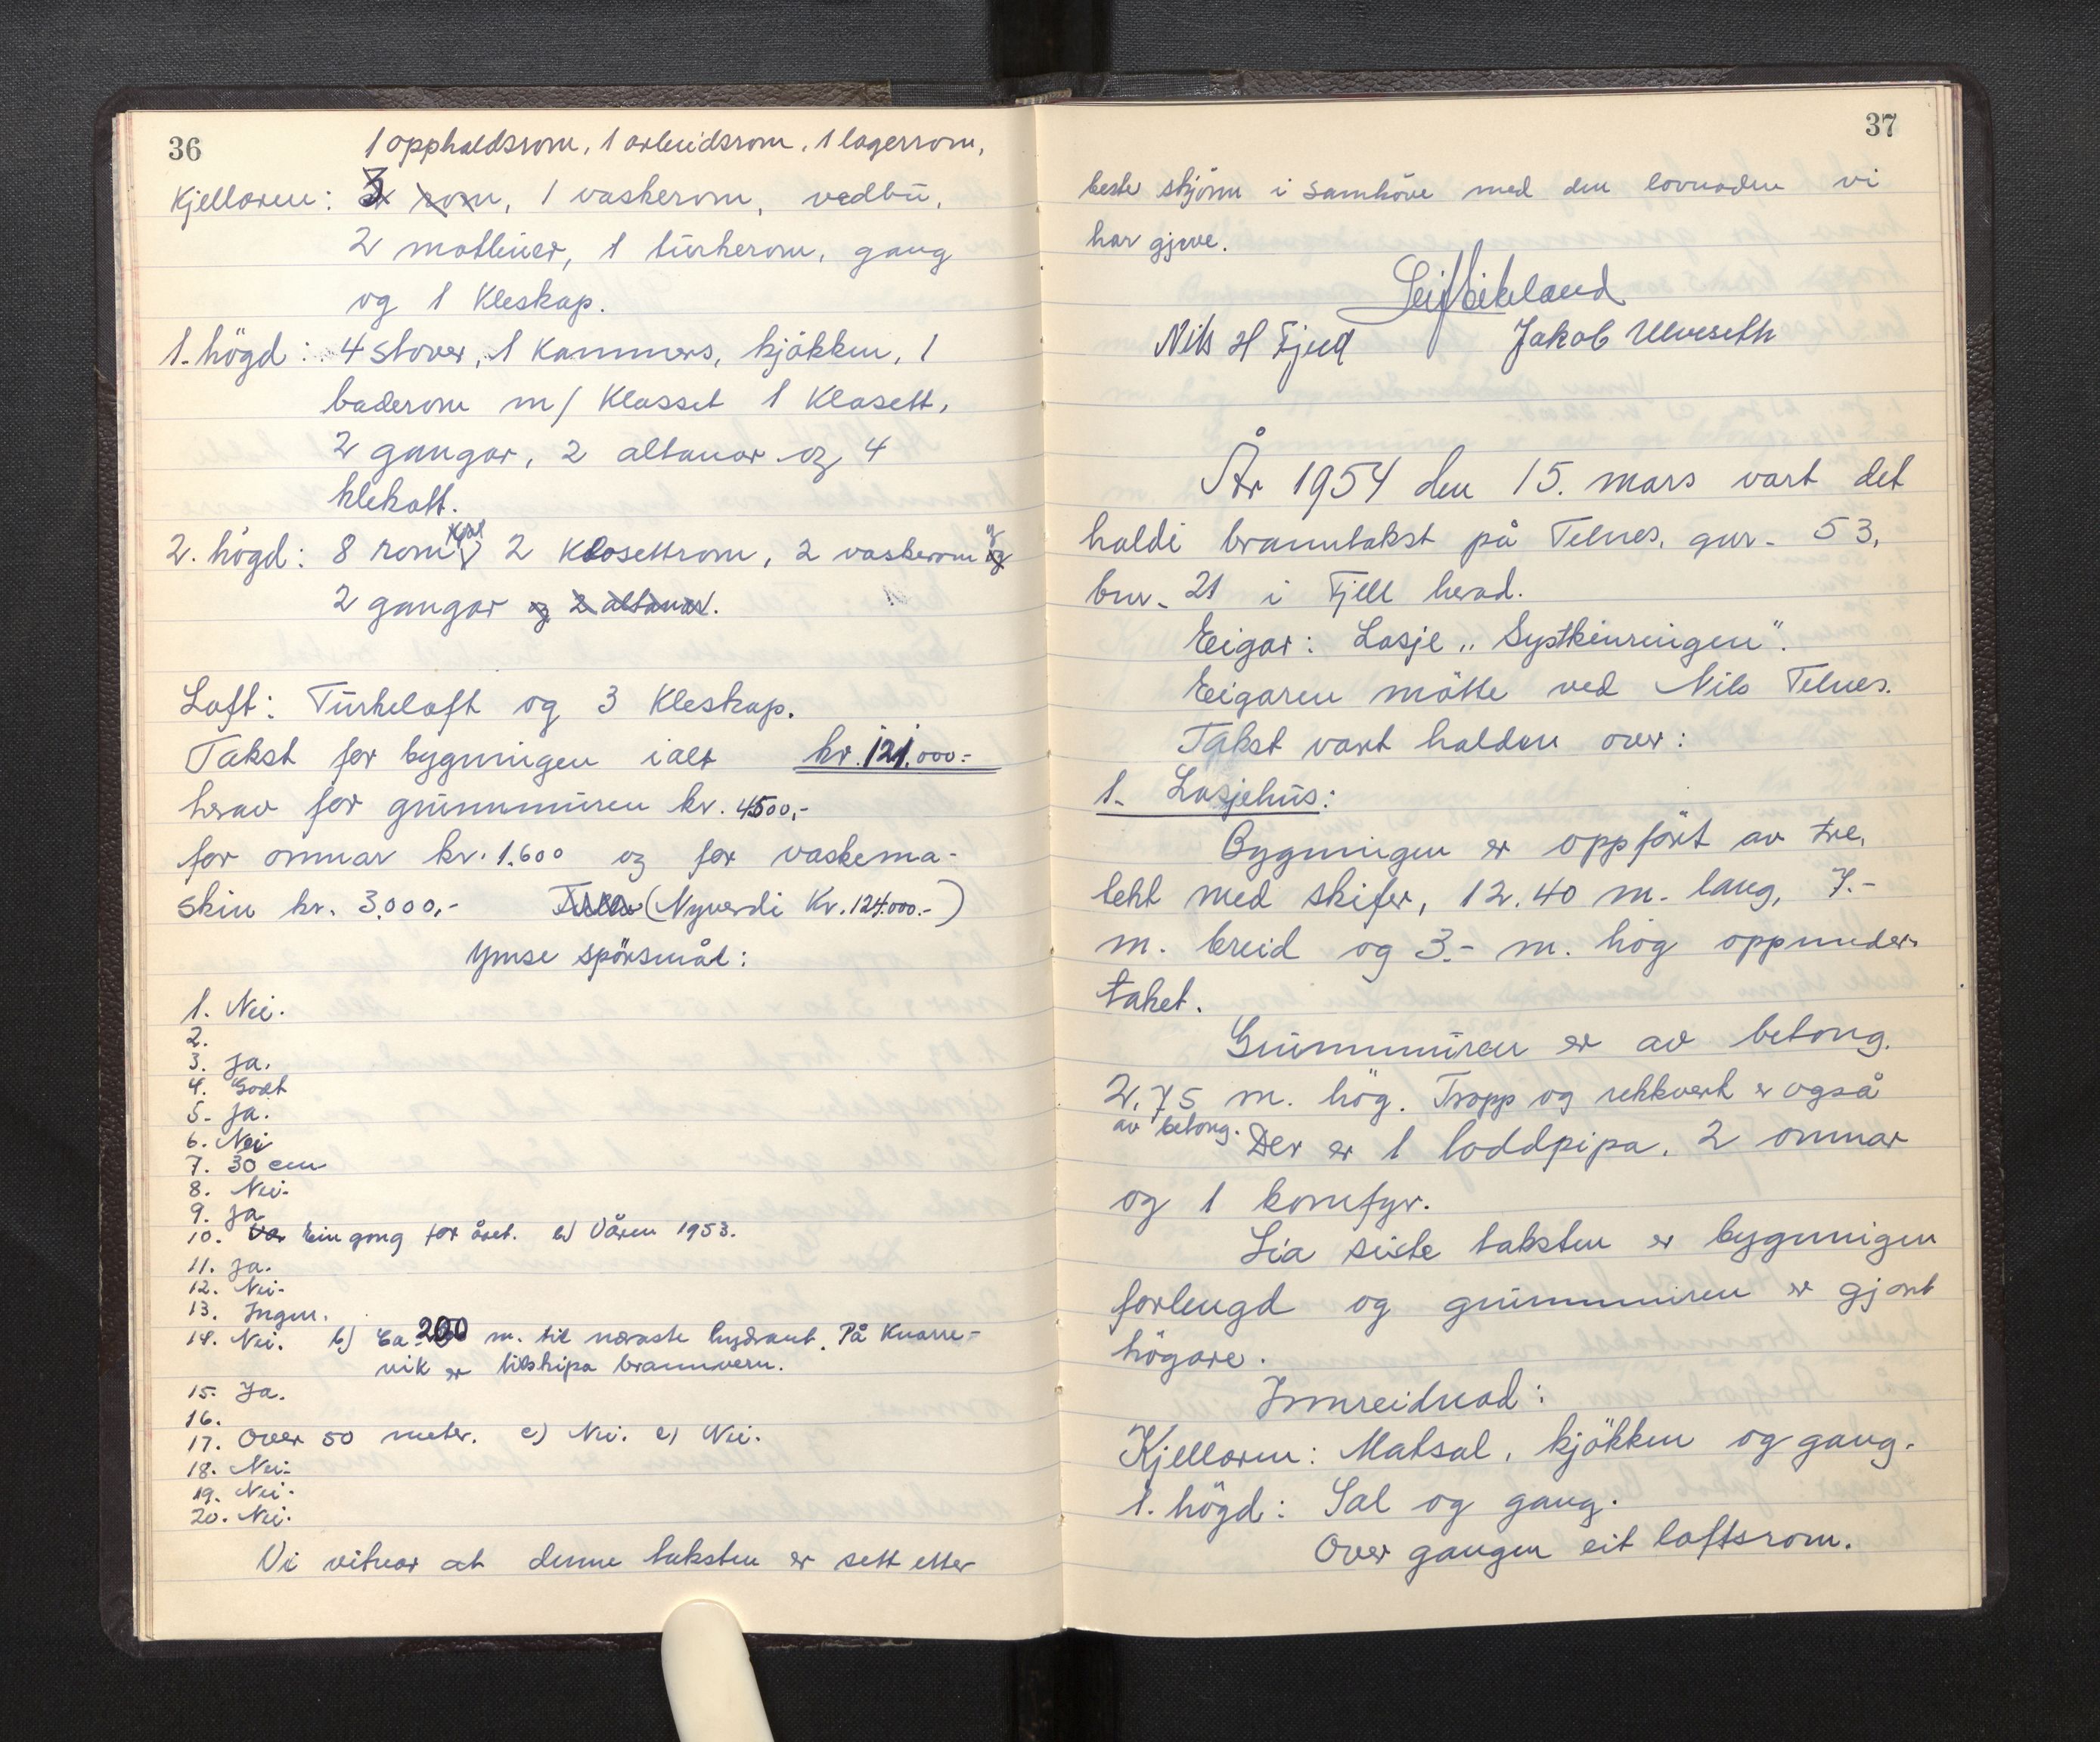 36
1 opphaldsrom, 1 arbeidsrom, 1 lagerrom,
Kjellaren: 3 rom, 1 vaskerom, vedbu,
2 matbuer, 1 turkerom, gang
og 1 Kleskap.
1. högd: 4 stover, 1 Kammers, kjökken, 1
baderom m/ Klosset 1 Klosett,
2 gangar, 2 altanar og 4
klekott.
2. högd: 8 rom, 2 Klosettrom, 2 vaskerom og
2 gangar og 2 altanar.
Loft: Turkeloft og 3 Kleskap.
Takst for bygningen ialt kr. 121.000.-
herav for grunnmuren kr. 4500,-
for omnar kr. 1.600 og for vaskema-
skin kr. 3.000,- (Nyverdi Kr. 124.000.-)
Ymse spörsmål:
1. Nei.
2.
3. Ja.
4. Godt
5. Ja.
6. Nei
7. 30 cm
8. Nei.
9. Ja
10. Ein gong for året. b) Våren 1953.
11. Ja.
12. Nei.
13. Ingen.
14. Nei. b) Ca 200 m. til næraste hydrant. På Knarre-
vik er tilskipa brannvern.
15. Ja.
16.
17. Over 50 meter. c) Nei. e) Nei.
18. Nei.
19. Nei.
20. Nei.
Vi vitnar at denne taksten er sett etter
37
beste skjönn i samhöve med den lovnaden vi
har gjeve.
Leif Eikeland
Nils H Fjell Jakob Ulveseth
År 1954 den 15. mars vart det
haldi branntakst på Telnes, gnr. 53,
bnr. 21 i Fjell herad.
Eigar: Losje „Systkinringen".
Eigaren mötte ved Nils Telnes.
Takst vart halden over:
1. Losjehus:
Bygningen er oppfört av tre,
tekt med skifer, 12.40 m. lang, 7.-
m. breid og 3.- m. hög oppunder-
taket.
Grunnmuren er av betong.
2,75 m. hög. Trapp og rekkverk er også
av betong. Der er 1 loddpipa, 2 omnar
og 1 komfyr.
Sia siste taksten er bygningen
forlengd og grunnmuren er gjort
högare.
Innreidnad:
Kjellaren: Matsal, kjökken og gang.
1. högd: Sal og gang.
Over gangen eit loftsrom.